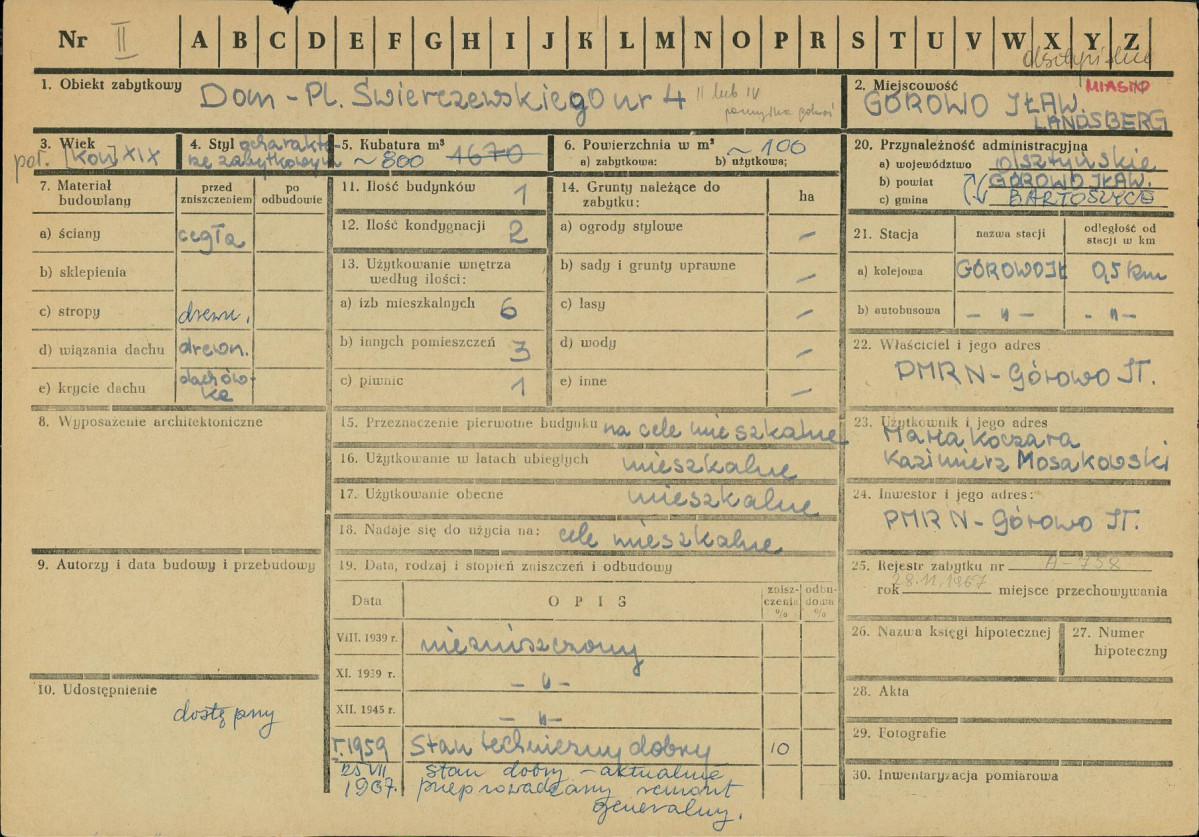 Nr II A B C D E F G H I J K L M N O P R S T U V W X Y Z
1. Obiekt zabytkowy Dom - Pl. Świerczewskiego nr 4 II lub IV
2. Miejscowość MIASTO
GÓROWO IŁAW.
LANDSBERG
3. Wiek poł. [kon] XIX
4. Styl o charakte-
rze zabytkowym
5. Kubatura m³
~ 800 1670
6. Powierzchnia w m² ~ 100
a) zabytkowa: b) użytkowa;
20. Przynależność administracyjna
a) województwo olsztyńskie
b) powiat GÓROWO IŁAW.
c) gmina BARTOSZYCE
7. Materiał budowlany
przed zniszczeniem
po odbudowie
a) ściany cegła
b) sklepienia
c) stropy drewn.
d) wiązania dachu drewn.
e) krycie dachu dachów-
ka
11. Ilość budynków 1
12. Ilość kondygnacji 2
13. Użytkowanie wnętrza
według ilości:
a) izb mieszkalnych 6
b) innych pomieszczeń 3
c) piwnic 1
14. Grunty należące do
zabytku: ha
a) ogrody stylowe –
b) sady i grunty uprawne –
c) lasy –
d) wody –
e) inne –
21. Stacja
nazwa stacji
odległość od
stacji w km
a) kolejowa GÓROWO IŁ 0,5 km
b) autobusowa – " – – " –
22. Właściciel i jego adres
PMRN - Górowo IŁ.
8. Wyposażenie architektoniczne
15. Przeznaczenie pierwotne budynku na cele mieszkalne
16. Użytkowanie w latach ubiegłych mieszkalne
17. Użytkowanie obecne mieszkalne
18. Nadaje się do użycia na: cele mieszkalne
23. Użytkownik i jego adres
Maria Koczara
Kazimierz Mosakowski
24. Inwestor i jego adres:
PMRN - Górowo IŁ.
9. Autorzy i data budowy i przebudowy
19. Data, rodzaj i stopień zniszczeń i odbudowy
Data
O P I S
znisz-
czenia
%
odbu-
dowa
%
VIII. 1939 r. niezniszczony
XI. 1939 r. – " –
XII. 1945 r. – " –
r. 1959 Stan techniczny dobry 10
25 VII
1967. stan dobry - aktualnie
przeprowadzany remont
generalny.
25. Rejestr zabytku nr A-758
rok 28.11.1967 miejsce przechowywania
26. Nazwa księgi hipotecznej
27. Numer
hipoteczny
10. Udostępnienie
dostępny
28. Akta
29. Fotografie
30. Inwentaryzacja pomiarowa